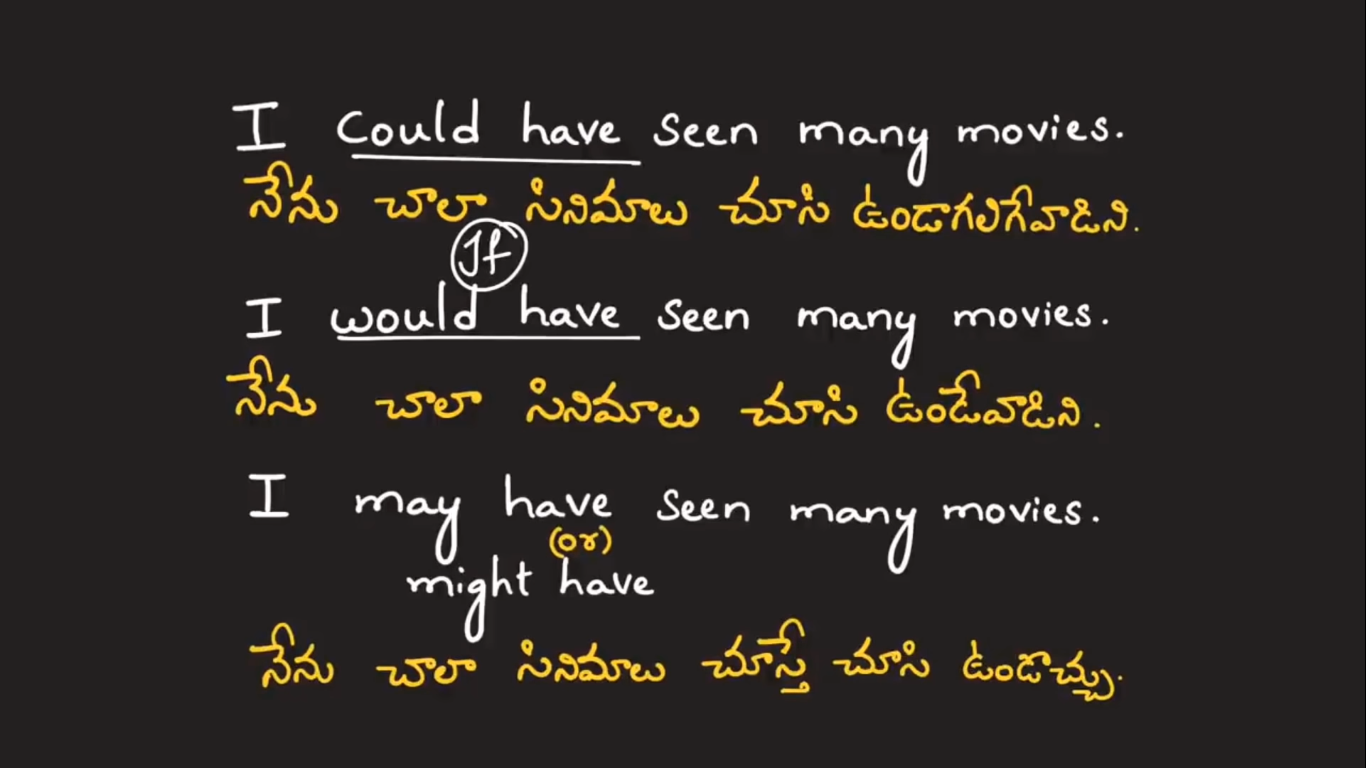 I could have seen many movies.
నేను చాలా సినిమాలు చూసి ఉండాగలిగేవాడిని.
If
I would have seen many movies.
నేను చాలా సినిమాలు చూసి ఉండేవాడిని.
I may have seen many movies.
(or)
might have
నేను చాలా సినిమాలు చూస్తే చూసి ఉండొచ్చు.